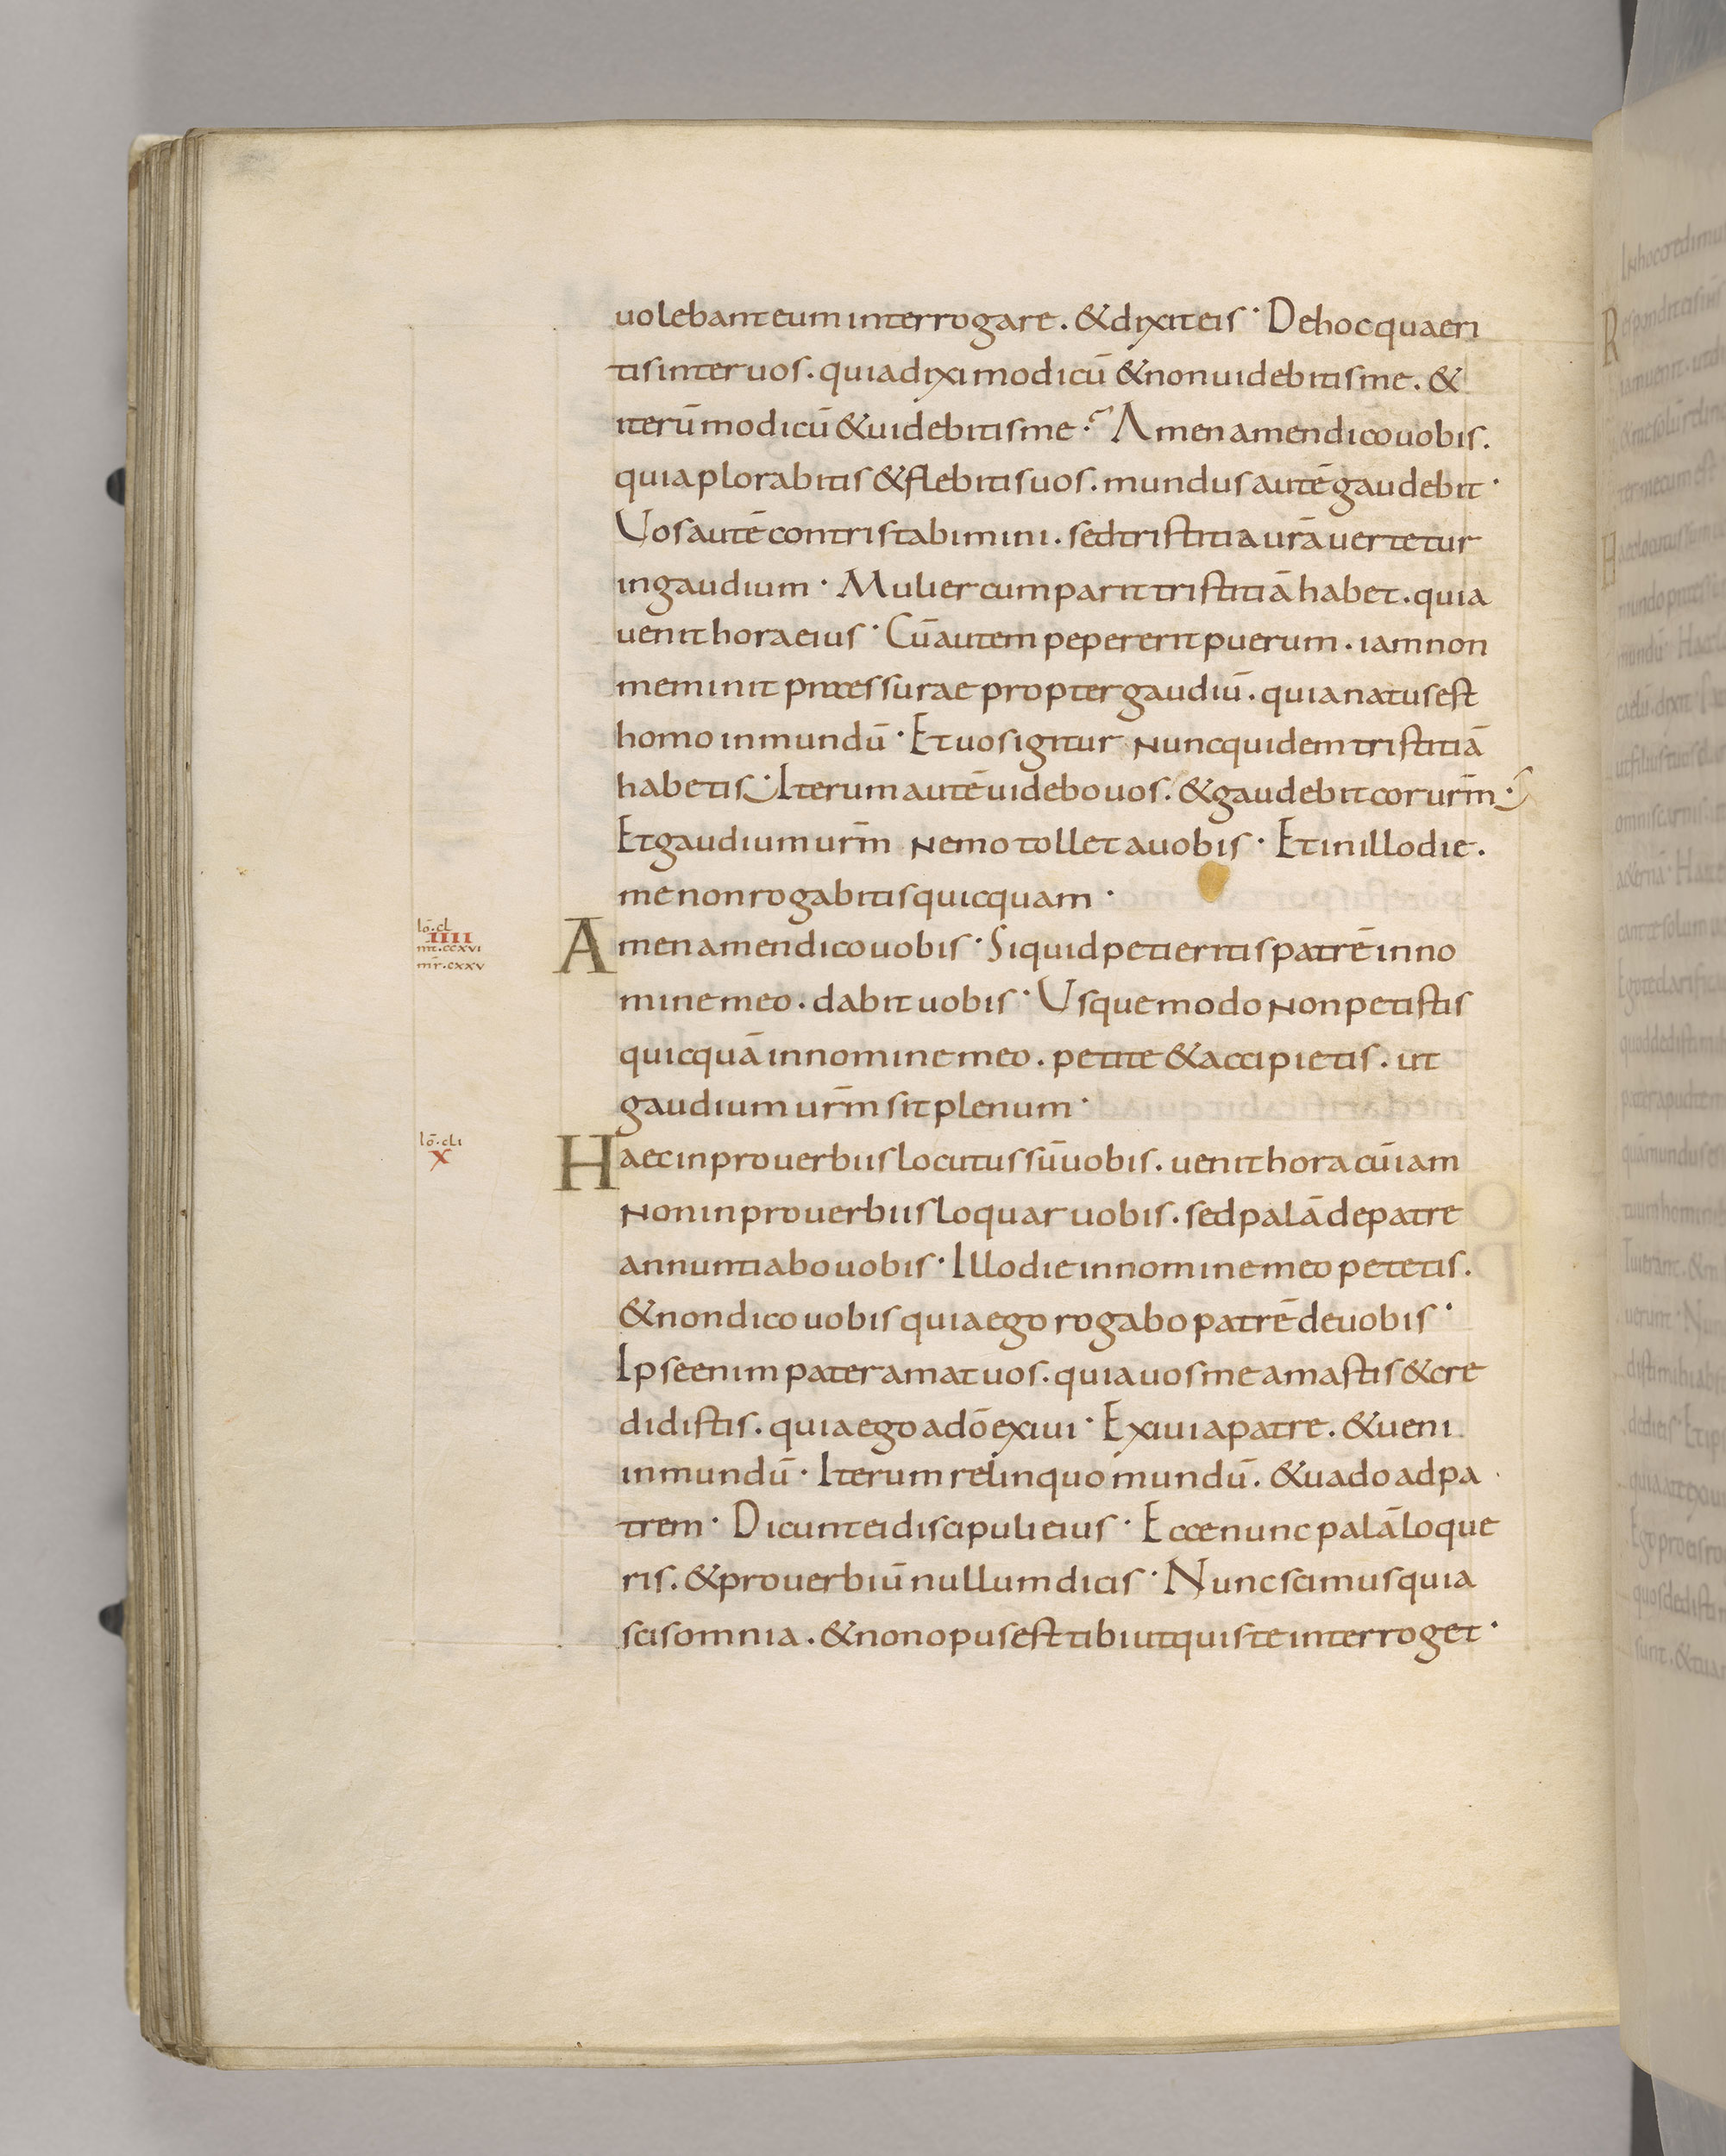 uolebant eum interrogare. & dixit eis· De hoc quaeri
tis inter uos. quia dixi modicū & non uidebitis me. &
iterū modicū & uidebitis me·? Amen amen dico uobis.
quia plorabitis & flebitis uos. mundus autē gaudebit·
Uos autē contristabimini. sed tristitia urā uertetur
in gaudium· Mulier cum parit tristitiā habet. quia
uenit hora eius· Cū autem pepererit puerum. iam non
meminit pressurae propter gaudiū. quia natus est
homo in mundū· Et uos igitur nunc quidem tristitiā
habetis· Iterum autē uidebo uos. & gaudebit cor urm̄·
Et gaudium urm̄ nemo tollet a uobis· Et in illo die.
me non rogabitis quicquam·
lō. cl
IIII
mt̄. ccxvi
mr̄. cxxv
Amen amen dico uobis· Si quid petieritis patrē in no
mine meo. dabit uobis· Usque modo non petistis
quicquā in nomine meo. petite & accipietis. ut
gaudium urm̄ sit plenum·
lō. cli
X
Haec in prouerbiis locutus sū uobis. uenit hora cū iam
non in prouerbiis loquar uobis. sed palā de patre
annuntiabo uobis· Illo die in nomine meo petetis.
& non dico uobis quia ego rogabo patrē de uobis·
Ipse enim pater amat uos. quia uos me amastis & cre
didistis. quia ego a dō exiui· Exiui a patre. & ueni
in mundū· Iterum relinquo mundū. & uado ad pa
trem· Dicunt ei discipuli eius· Ecce nunc palā loque
ris. & prouerbiū nullum dicis· Nunc scimus quia
scis omnia. & non opus est tibi ut quis te interroget·